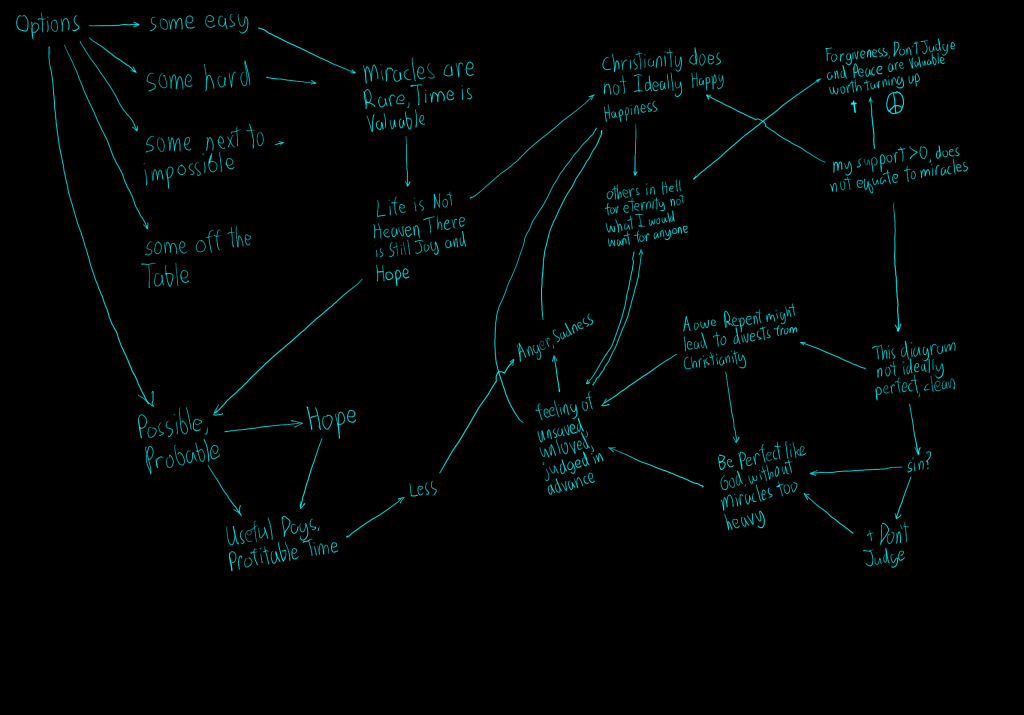 Options
some easy
some hard
some next to
impossible
some off the
Table
Miracles are
Rare, Time is
Valuable
Life is Not
Heaven There
is Still Joy and
Hope
Possible,
Probable
Hope
Useful Days,
Profitable Time
Less
Anger, Sadness
Christianity does
not Ideally Happy
Happiness
others in Hell
for eternity not
what I would
want for anyone
feeling of
unsaved,
unloved,
judged in
advance
Forgiveness, Don't Judge
and Peace are Valuable
worth turning up
my support >0, does
not equate to miracles
A owe Repent might
lead to divests from
Christianity
This diagram
not ideally
perfect, clean
Be Perfect like
God, without
miracles too
heavy
sin?
+ Don't
Judge